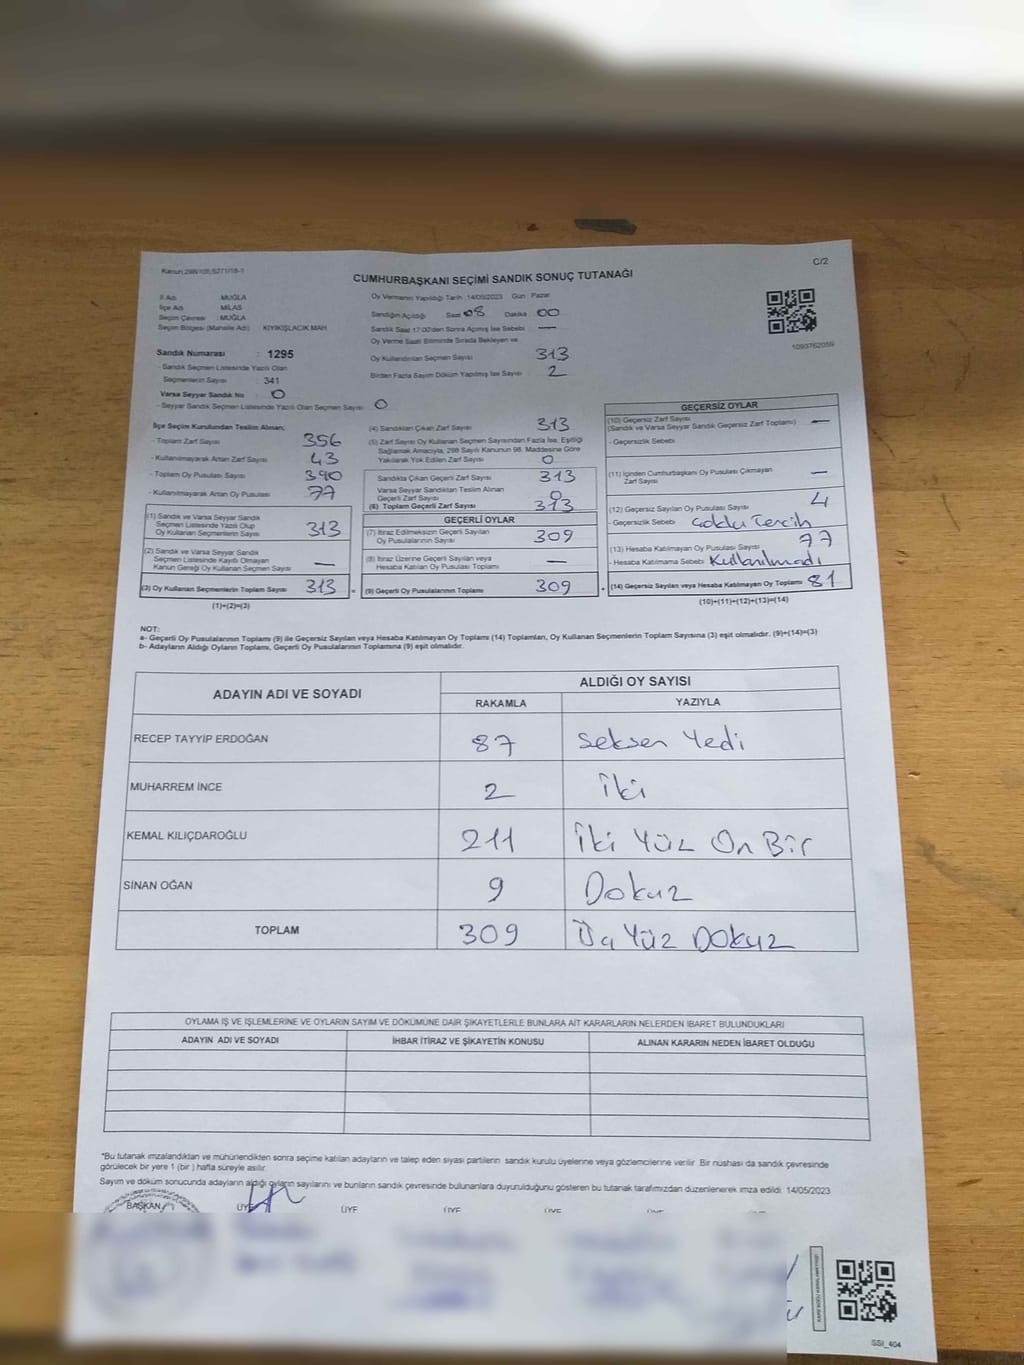 Kanun;298/105,6271/18-1
C/2
CUMHURBAŞKANI SEÇİMİ SANDIK SONUÇ TUTANAĞI
İl Adı : MUĞLA
İlçe Adı : MİLAS
Seçim Çevresi : MUĞLA
Seçim Bölgesi (Mahalle Adı) : KIYIKIŞLACIK MAH
Sandık Numarası : 1295
- Sandık Seçmen Listesinde Yazılı Olan
Seçmenlerin Sayısı : 341
Varsa Seyyar Sandık No : 0
- Seyyar Sandık Seçmen Listesinde Yazılı Olan Seçmen Sayısı : 0
Oy Vermenin Yapıldığı Tarih :14/05/2023 Gün : Pazar
Sandığın Açıldığı Saat : 08 Dakika : 00
Sandık Saat 17:00'den Sonra Açılmış İse Sebebi : —
Oy Verme Saati Bitiminde Sırada Bekleyen ve
Oy Kullandırılan Seçmen Sayısı : 313
Birden Fazla Sayım Döküm Yapılmış İse Sayısı : 2
1093762059
İlçe Seçim Kurulundan Teslim Alınan;
- Toplam Zarf Sayısı : 356
- Kullanılmayarak Artan Zarf Sayısı : 43
- Toplam Oy Pusulası Sayısı : 390
- Kullanılmayarak Artan Oy Pusulası : 77
(1) Sandık ve Varsa Seyyar Sandık
Seçmen Listesinde Yazılı Olup
Oy Kullanan Seçmenlerin Sayısı : 313
(2) Sandık ve Varsa Seyyar Sandık
Seçmen Listesinde Kayıtlı Olmayan
Kanun Gereği Oy Kullanan Seçmen Sayısı : —
(3) Oy Kullanan Seçmenlerin Toplam Sayısı : 313
(1)+(2)=(3)
(4) Sandıktan Çıkan Zarf Sayısı : 313
(5) Zarf Sayısı Oy Kullanan Seçmen Sayısından Fazla İse, Eşitliği
Sağlamak Amacıyla, 298 Sayılı Kanunun 98. Maddesine Göre
Yakılarak Yok Edilen Zarf Sayısı : 0
Sandıkta Çıkan Geçerli Zarf Sayısı : 313
Varsa Seyyar Sandıktan Teslim Alınan
Geçerli Zarf Sayısı : 0
(6) Toplam Geçerli Zarf Sayısı : 313
GEÇERLİ OYLAR
(7) İtiraz Edilmeksizin Geçerli Sayılan
Oy Pusulalarının Sayısı : 309
(8) İtiraz Üzerine Geçerli Sayılan veya
Hesaba Katılan Oy Pusulası Toplamı : —
= (9) Geçerli Oy Pusulalarının Toplamı : 309
GEÇERSİZ OYLAR
(10) Geçersiz Zarf Sayısı
(Sandık ve Varsa Seyyar Sandık Geçersiz Zarf Toplamı) : —
- Geçersizlik Sebebi
(11) İçinden Cumhurbaşkanı Oy Pusulası Çıkmayan
Zarf Sayısı : —
(12) Geçersiz Sayılan Oy Pusulası Sayısı : 4
- Geçersizlik Sebebi Çoklu Tercih
(13) Hesaba Katılmayan Oy Pusulası Sayısı : 77
- Hesaba Katılmama Sebebi Kullanılmadı
+ (14) Geçersiz Sayılan veya Hesaba Katılmayan Oy Toplamı : 81
(10)+(11)+(12)+(13)=(14)
NOT:
a- Geçerli Oy Pusulalarının Toplamı (9) ile Geçersiz Sayılan veya Hesaba Katılmayan Oy Toplamı (14) Toplamları, Oy Kullanan Seçmenlerin Toplam Sayısına (3) eşit olmalıdır. (9)+(14)=(3)
b- Adayların Aldığı Oyların Toplamı, Geçerli Oy Pusulalarının Toplamına (9) eşit olmalıdır.
ADAYIN ADI VE SOYADI
ALDIĞI OY SAYISI
RAKAMLA YAZIYLA
RECEP TAYYİP ERDOĞAN 87 Seksen Yedi
MUHARREM İNCE 2 İki
KEMAL KILIÇDAROĞLU 211 İki Yüz On Bir
SİNAN OĞAN 9 Dokuz
TOPLAM 309 Üç Yüz Dokuz
OYLAMA İŞ VE İŞLEMLERİNE VE OYLARIN SAYIM VE DÖKÜMÜNE DAİR ŞİKAYETLERLE BUNLARA AİT KARARLARIN NELERDEN İBARET BULUNDUKLARI
ADAYIN ADI VE SOYADI İHBAR İTİRAZ VE ŞİKAYETİN KONUSU ALINAN KARARIN NEDEN İBARET OLDUĞU
*Bu tutanak imzalandıktan ve mühürlendikten sonra seçime katılan adayların ve talep eden siyasi partilerin sandık kurulu üyelerine veya gözlemcilerine verilir. Bir nüshası da sandık çevresinde
görülecek bir yere 1 (bir ) hafta süreyle asılır.
Sayım ve döküm sonucunda adayların aldığı oyların sayılarını ve bunların sandık çevresinde bulunanlara duyurulduğunu gösteren bu tutanak tarafımızdan düzenlenerek imza edildi. 14/05/2023
BAŞKAN ÜYE ÜYE ÜYE ÜYE ÜYE
SSI_404